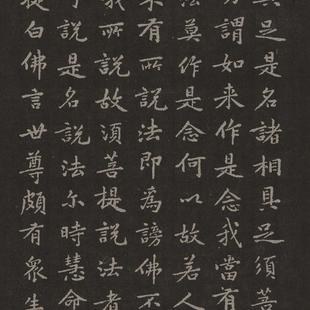 具足是名諸相具足須菩
勿謂如来作是念我當有
法莫作是念何以故若人
来有所說法即為謗佛不
我所說故須菩提說法者
可說是名說法尒時慧命
提白佛言世尊頗有衆生